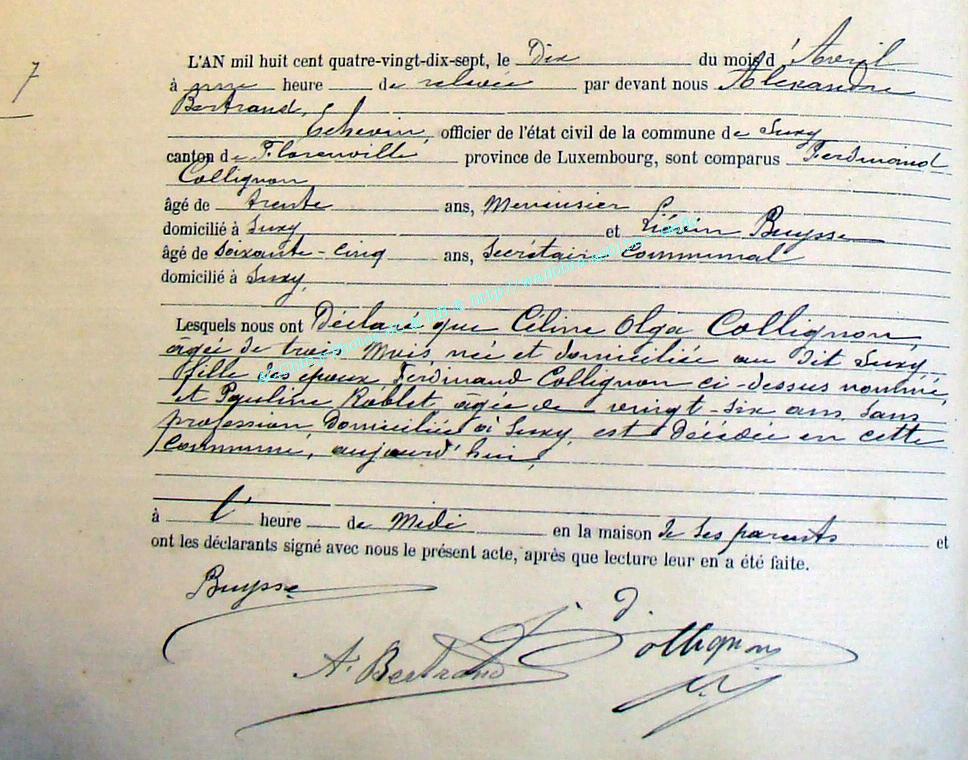 7
L'AN mil huit cent quatre-vingt-dix-sept, le Dix du mois d'Avril
à une heure de relevée par devant nous Alexandre
Bertrand,
Echevin, officier de l'état civil de la commune de Suxy
canton de Florenville province de Luxembourg, sont comparus Ferdinand
Collignon
âgé de trente ans, Menuisier
domicilié à Suxy et Liévin Buysse
âgé de soixante-cinq ans, Secrétaire Communal
domicilié à Suxy,
Lesquels nous ont Déclaré que Céline Olga Collignon,
âgée de trois Mois née et domiciliée au dit Suxy,
fille des époux Ferdinand Collignon ci-dessus nommé,
et Pauline Roblet âgée de vingt-six ans, sans
profession Domiciliée à Suxy, est Décédée en cette
Commune, aujourd'hui,
à l' heure de Midi en la maison de ses parents et
ont les déclarants signé avec nous le présent acte, après que lecture leur en a été faite.
Buysse
A. Bertrand
Collignon